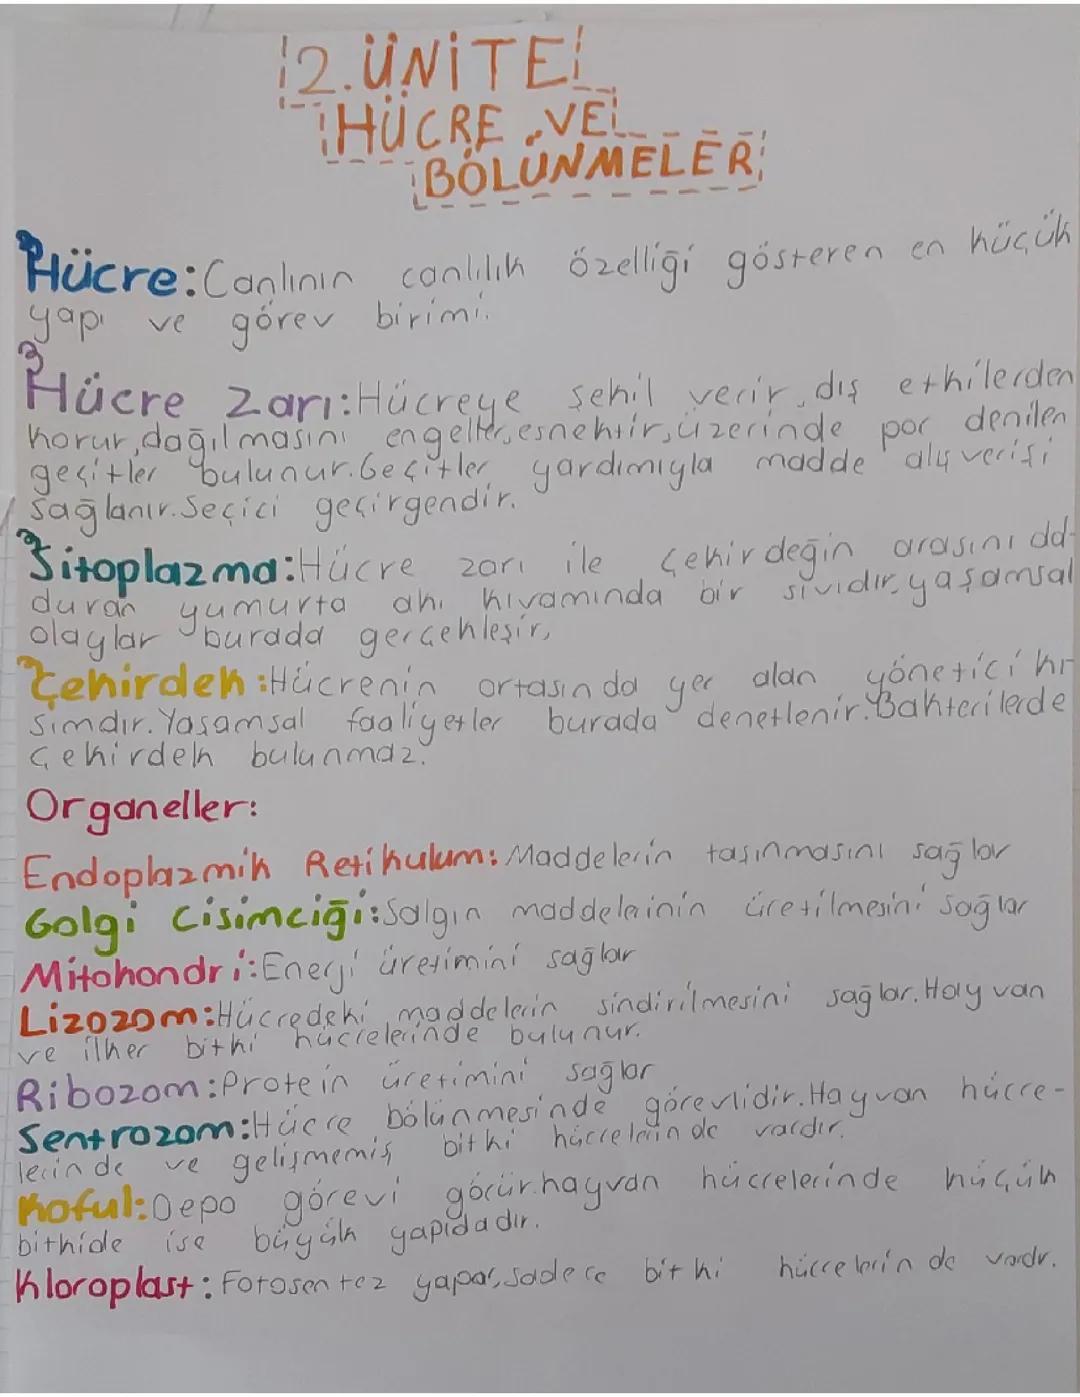 2.ÜNİTE
HÜCRE VE
BÖLÜNMELER
Hücre:Canlının canlılık özelliği gösteren en küçük
yapı ve görev birimi.
Hücre Zarı:Hücreye şekil verir, dış etkilerden
korur,dağılmasını engeller,esnektir,üzerinde por denilen
geçitler bulunur.Geçitler yardımıyla madde alış verişi
sağlanır.Seçici geçirgendir.
Sitoplazma:Hücre zarı ile çekirdeğin arasını dol-
duran yumurta akı kıvamında bir sıvıdır, yaşamsal
olaylar burada gerçekleşir,
Çekirdek:Hücrenin ortasında yer alan yönetici kı-
sımdır.Yaşamsal faaliyetler burada denetlenir.Bakterilerde
çekirdek bulunmaz.
Organeller:
Endoplazmik Retikulum:Maddelerin taşınmasını sağlar
Golgi Cisimciği:Salgın maddelerinin üretilmesini sağlar
Mitokondri:Enerji üretimini sağlar
Lizozom:Hücredeki maddelerin sindirilmesini sağlar.Hayvan
ve ilker bitki hücrelerinde bulunur.
Ribozom:Protein üretimini sağlar
Sentrozom:Hücre bölünmesinde görevlidir.Hayvan hücre-
lerinde ve gelişmemiş bitki hücrelerinde vardır.
Koful:Depo görevi görür.hayvan hücrelerinde küçük
bitkide ise büyük yapıdadır.
Kloroplast:Fotosentez yapar,sadece bitki hücrelerinde vardır.